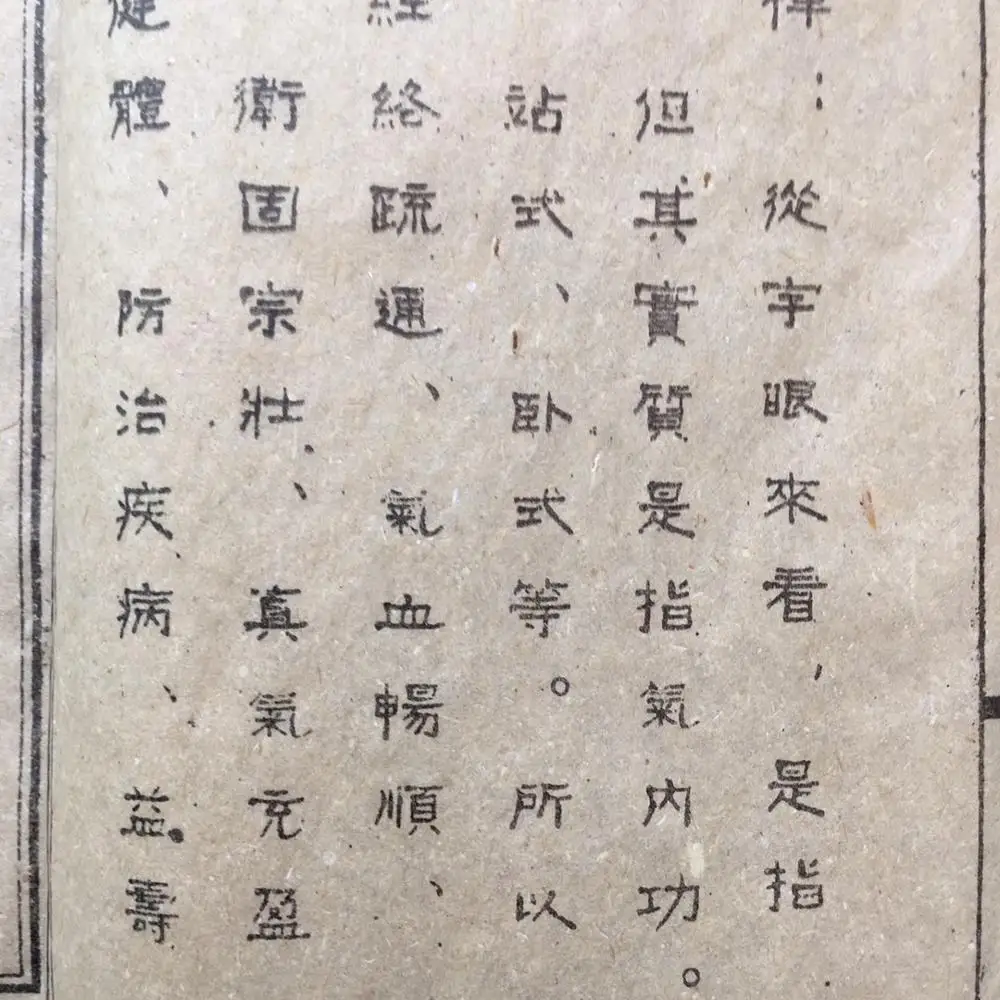 律：從字眼來看，是指
但其實質是指氣內功。
站式、卧式等。所以
經絡疏通、氣血暢順、
衛固宗壯、真氣充盈
健體、防治疾病、益壽